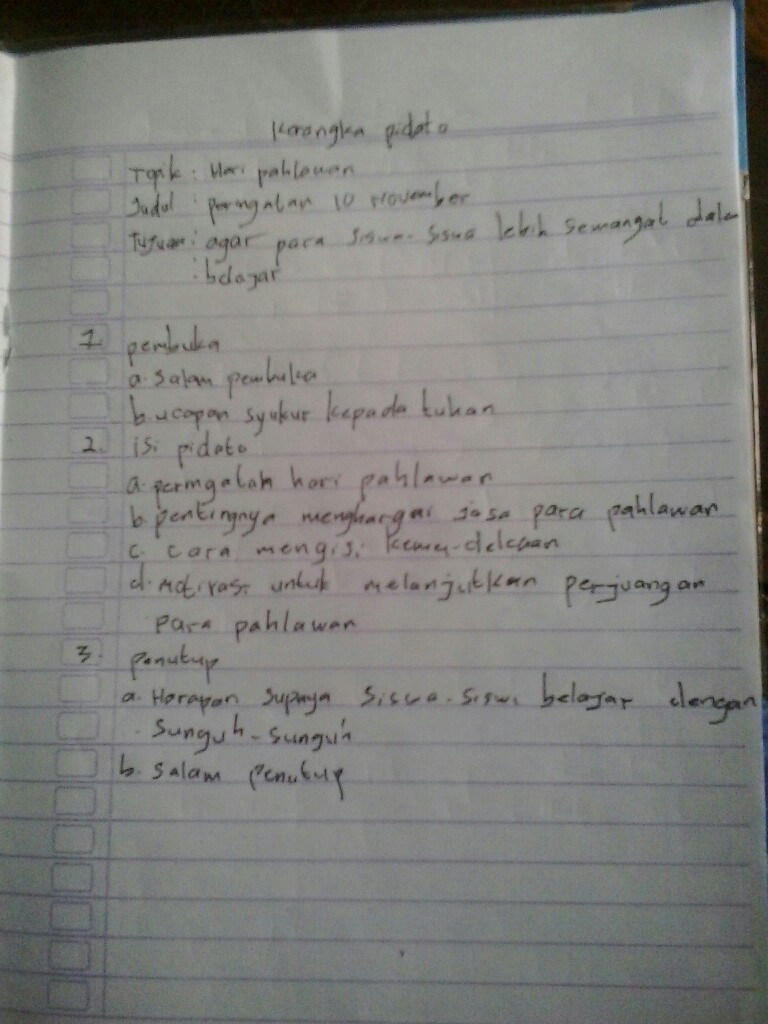 Kerangka pidato
Topik : Hari pahlawan
Judul : peringatan 10 November
Tujuan : agar para siswa-siswa lebih semangat dalam
: belajar
1. pembuka
a. Salam pembuka
b. ucapan syukur kepada tuhan
2. isi pidato
a. peringatan hari pahlawan
b. pentingnya menghargai jasa para pahlawan
c. cara mengisi kemer-dekaan
d. Motivasi untuk melanjutkan perjuangan
para pahlawan
3. penutup
a. Harapan supaya siswa-siswi belajar dengan
Sunguh-sunguh
b. Salam penutup